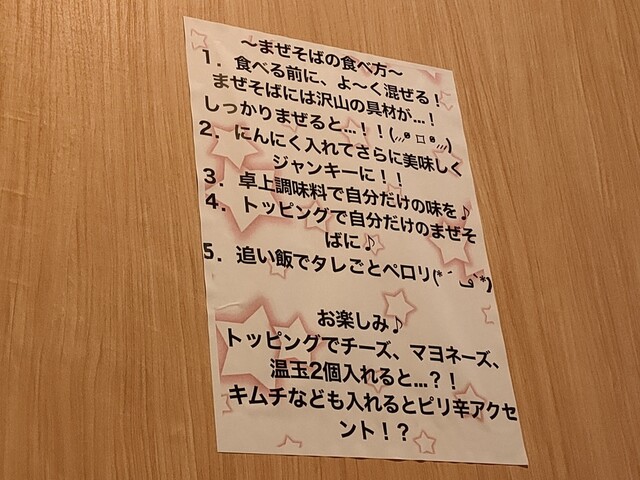 〜まぜそばの食べ方〜
1．食べる前に、よ〜く混ぜる！
まぜそばには沢山の具材が…！
しっかりまぜると…！！(⸝⸝⸝ᵒ̴̶̷ ⌑ ᵒ̴̶̷⸝⸝⸝)
2．にんにく入れてさらに美味しく
ジャンキーに！！
3．卓上調味料で自分だけの味を♪
4．トッピングで自分だけのまぜそ
ばに♪
5．追い飯でタレごとペロリ(*´ڡ`*)
お楽しみ♪
トッピングでチーズ、マヨネーズ、
温玉2個入れると…？！
キムチなども入れるとピリ辛アクセ
ント！？